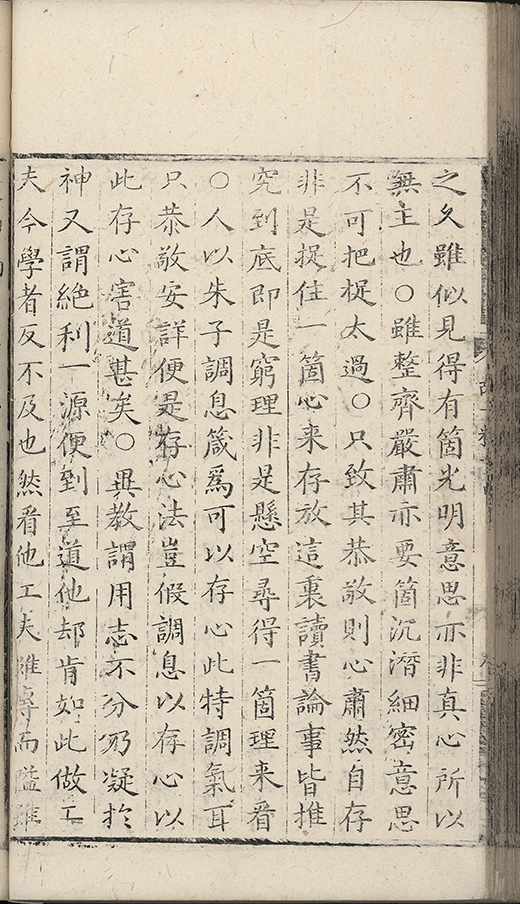 之久雖似見得有箇光明意思亦非真心所以
無主也○雖整齊嚴肅亦要箇沉潛細密意思
不可把捉太過○只致其恭敬則心肅然自存
非是捉住一箇心来存放這裏讀書論事皆推
究到底即是窮理非是懸空尋得一箇理来看
○人以朱子調息箴爲可以存心此特調氣耳
只恭敬安詳便是存心法豈假調息以存心以
此存心害道甚矣○異教謂用志不分乃凝於
神又謂絶利一源便到至道他却肯如此做工
夫今學者反不及也然看他工夫雖專而隘雖